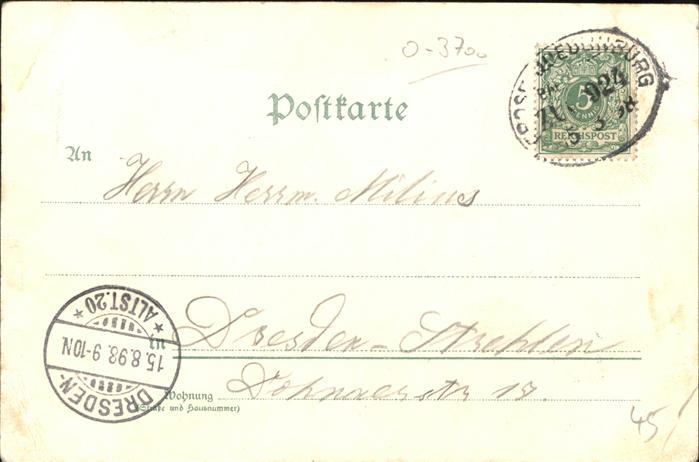 0-3700
Postkarte
FROSE QUEDLINBURG
ZUG 924
98
5
REICHSPOST
An
Herrn Herrm. Milius
in Dresden-Strehlen
Wohnung
(Straße und Hausnummer)
Dohnaerstr 17.
DRESDEN-
15.8.98. 9-10N.
* ALTST.20 *
45